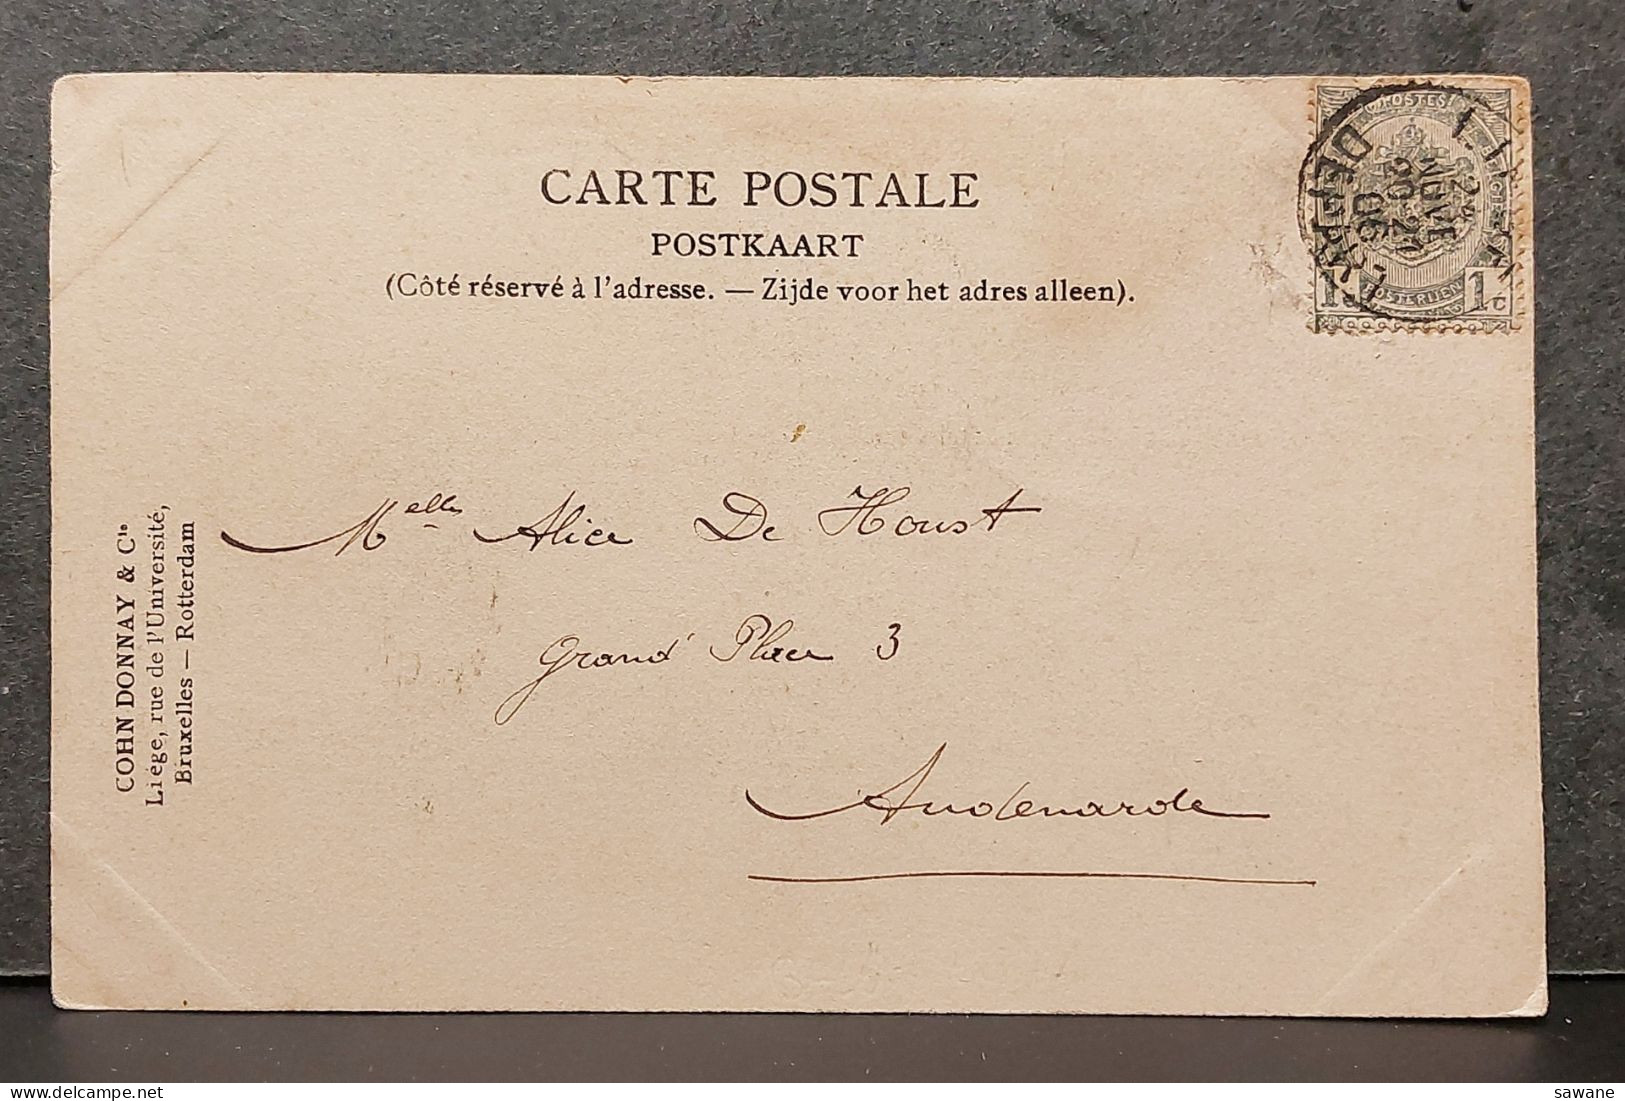 CARTE POSTALE
POSTKAART
(Côté réservé à l'adresse. — Zijde voor het adres alleen).
POSTES
POSTERIJEN
1c 1c
Melle Alice De Houst
Grand' Place 3
Audenarde
COHN DONNAY & Cie
Liége, rue de l'Université,
Bruxelles — Rotterdam
sawane